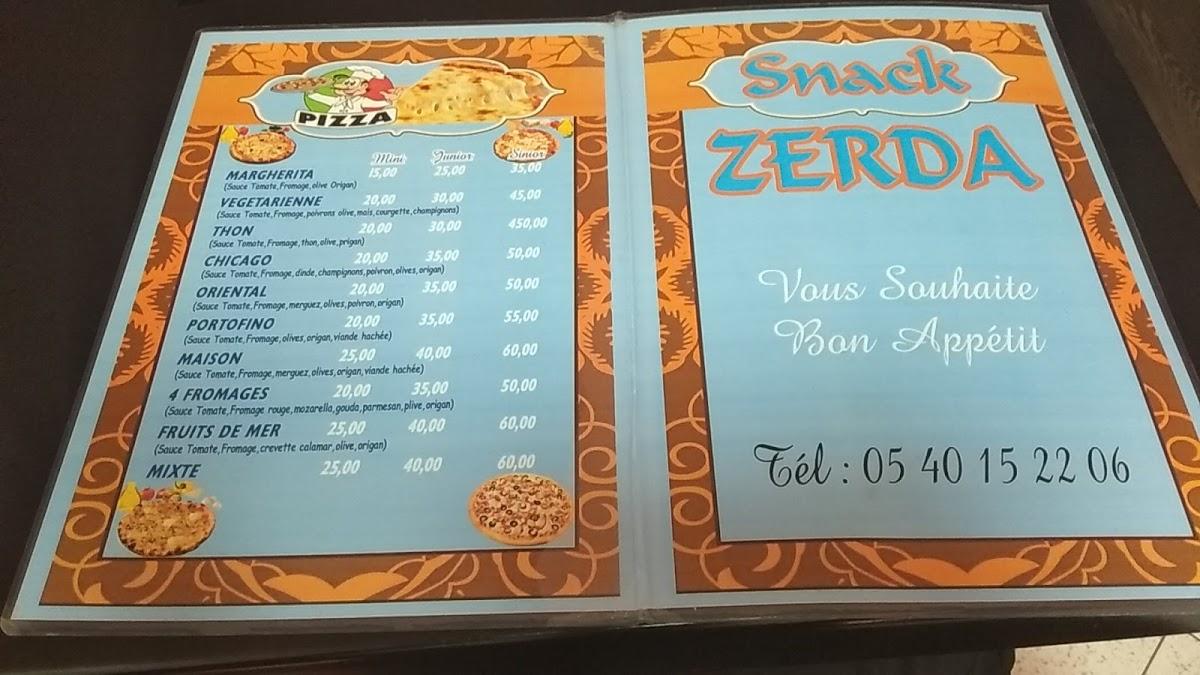 PIZZA
Mini Junior Sinior
MARGHERITA 15,00 25,00 35,00
(Sauce Tomate,Fromage,olive Origan)
VEGETARIENNE 20,00 30,00 45,00
(Sauce Tomate,Fromage,poivrons olive,mais,courgette,champignons)
THON 20,00 30,00 450,00
(Sauce Tomate,Fromage,thon,olive,prigan)
CHICAGO 20,00 35,00 50,00
(Sauce Tomate,Fromage,dinde,champignons,poivron,olives,origan)
ORIENTAL 20,00 35,00 50,00
(Sauce Tomate,Fromage,merguez,olives,poivron,origan)
PORTOFINO 20,00 35,00 55,00
(Sauce Tomate,Fromage,olives,origan,viande hachée)
MAISON 25,00 40,00 60,00
(Sauce Tomate,Fromage,merguez,olives,origan,viande hachée)
4 FROMAGES 20,00 35,00 50,00
(Sauce Tomate,Fromage rouge,mozarella,gouda,parmesan,plive,origan)
FRUITS DE MER 25,00 40,00 60,00
(Sauce Tomate,Fromage,crevette calamar,olive,origan)
MIXTE 25,00 40,00 60,00
Snack
ZERDA
Vous Souhaite
Bon Appétit
Tél : 05 40 15 22 06